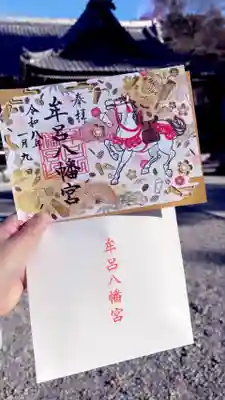 奉拝
牟呂八幡宮
令和八年
一月九
牟呂八幡宮